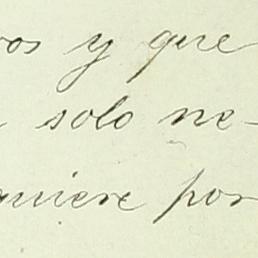 vos y que
solo ne-
quiere por